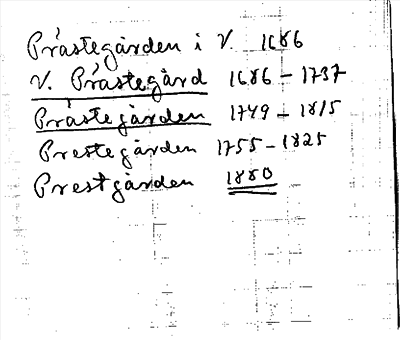 Prästegården i V. 1686
V. Prästegård 1686 - 1737
Prästegården 1749 - 1815
Prestegården 1755 - 1825
Prestgården 1880